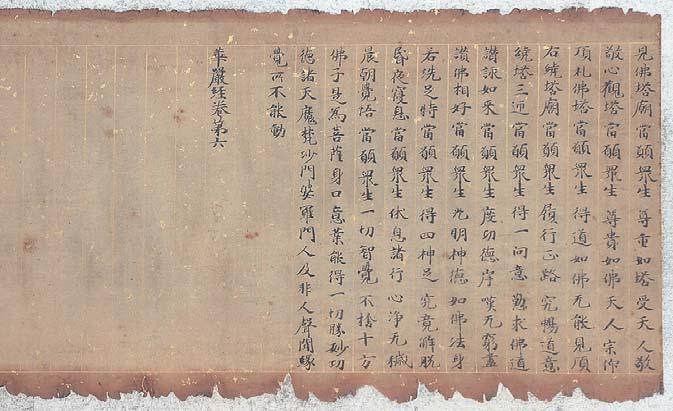 見佛塔廟 當願眾生 尊重如塔 受天人敬
敬心觀塔 當願眾生 尊貴如佛 天人宗仰
頂礼佛塔 當願眾生 得道如佛 无能見頂
右繞塔廟 當願眾生 履行正路 究暢道意
繞塔三匝 當願眾生 得一向意 勤求佛道
讚詠如来 當願眾生 度功德岸 嘆无窮盡
讚佛相好 當願眾生 光明神德 如佛法身
若洗足時 當願眾生 得四神足 究竟解脱
昏夜寝息 當願眾生 休息諸行 心净无穢
晨朝覺悟 當願眾生 一切智覺 不捨十方
佛子是為菩薩身口意業能得一切勝妙功
德諸天魔梵沙門婆羅門人及非人聲聞緣
覺所不能動
華嚴経卷第六